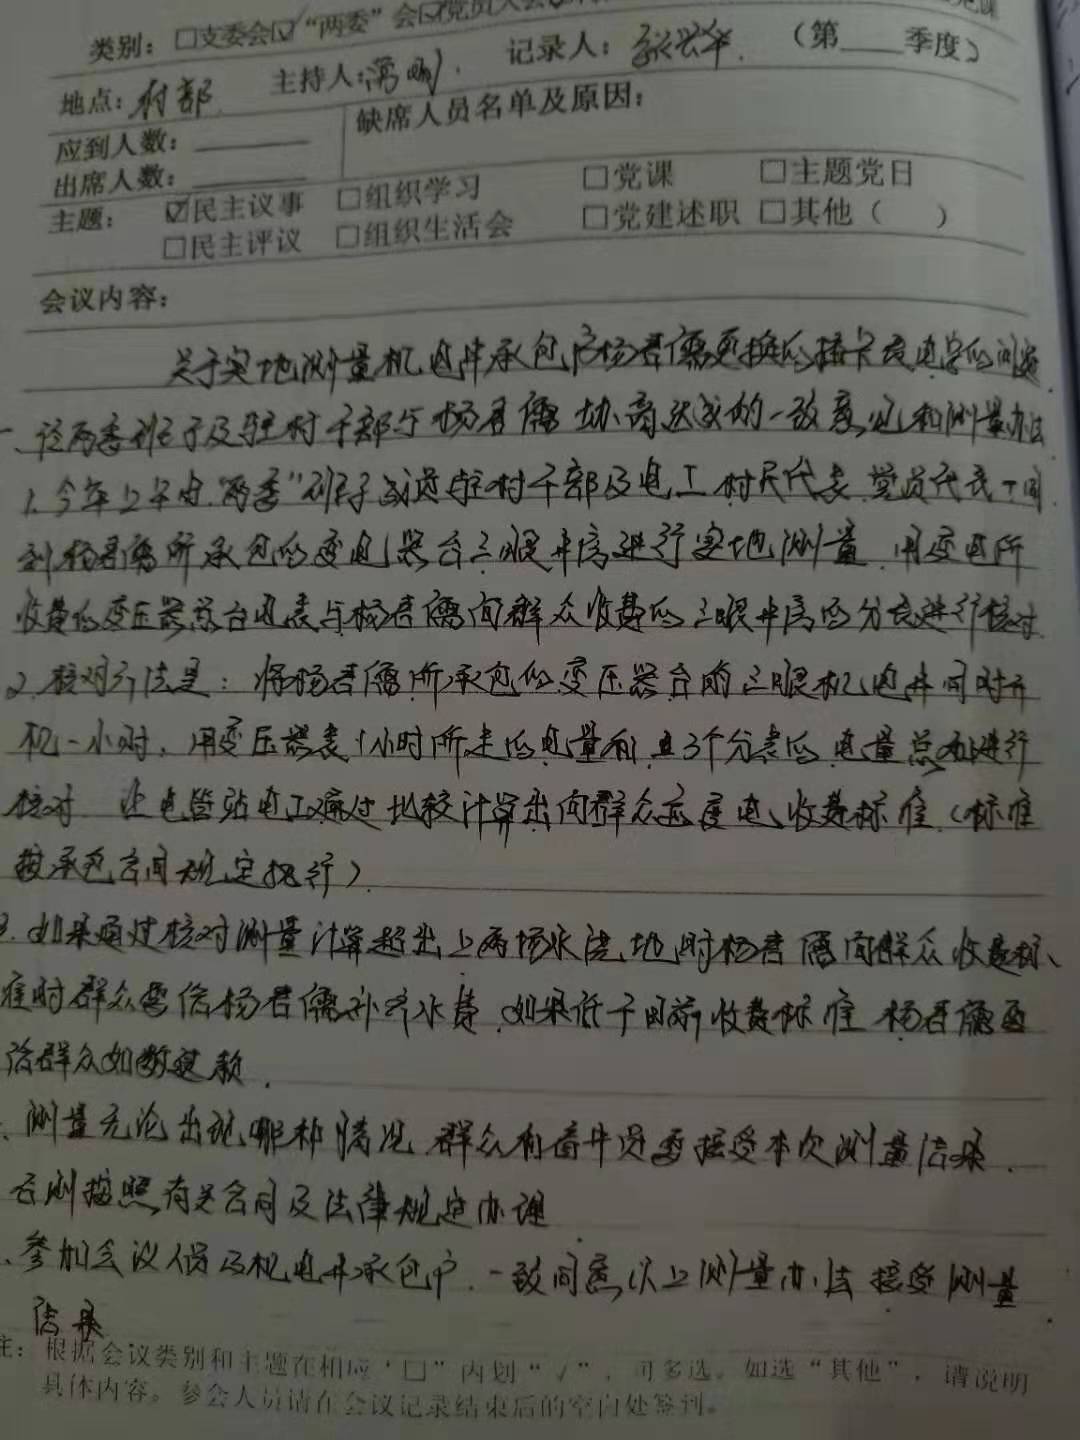 类别：□支委会☑“两委”会☑党员大会
地点：村部 主持人： 记录人： （第 季度）
应到人数： 缺席人员名单及原因：
出席人数：
主题： ☑民主议事 □组织学习 □党课 □主题党日
□民主评议 □组织生活会 □党建述职 □其他（ ）
会议内容：
关于实地测量机电井承包户杨君儒更换的插卡表电字的问题
一、经两委班子及驻村干部与杨君儒协商达成的一致意见和测量办法
1.今年上午由“两委”班子成员驻村干部及电工 村民代表 党员代表一同
到杨君儒所承包的变电器台三眼井房进行实地测量 用变电所
收费的变压器总台电表与杨君儒向群众收费的三眼井房的分表进行核对
2.核对方法是：将杨君儒所承包的变压器台的三眼机电井同时开
机一小时，用变压器表1小时所走的电量和 3个分表的电量总和进行
核对 让电管站电工通过比较计算出向群众应度电收费标准（标准
按承包合同规定执行）
3.如果通过核对测量计算超出上两场水浇地时杨君儒向群众收费标
准时群众要给杨君儒补齐水费，如果低于目前收费标准 杨君儒要
给群众如数退款．
测量无论出现哪种情况 群众和看井员要接受本次测量结果．
否则按照有关合同及法律规定办理
参加会议人员及机电井承包户．一致同意以上测量办法 接受测量
结果
注：根据会议类别和主题在相应“□”内划“√”，可多选。如选“其他”，请说明
具体内容。参会人员请在会议记录结束后的空白处签到。